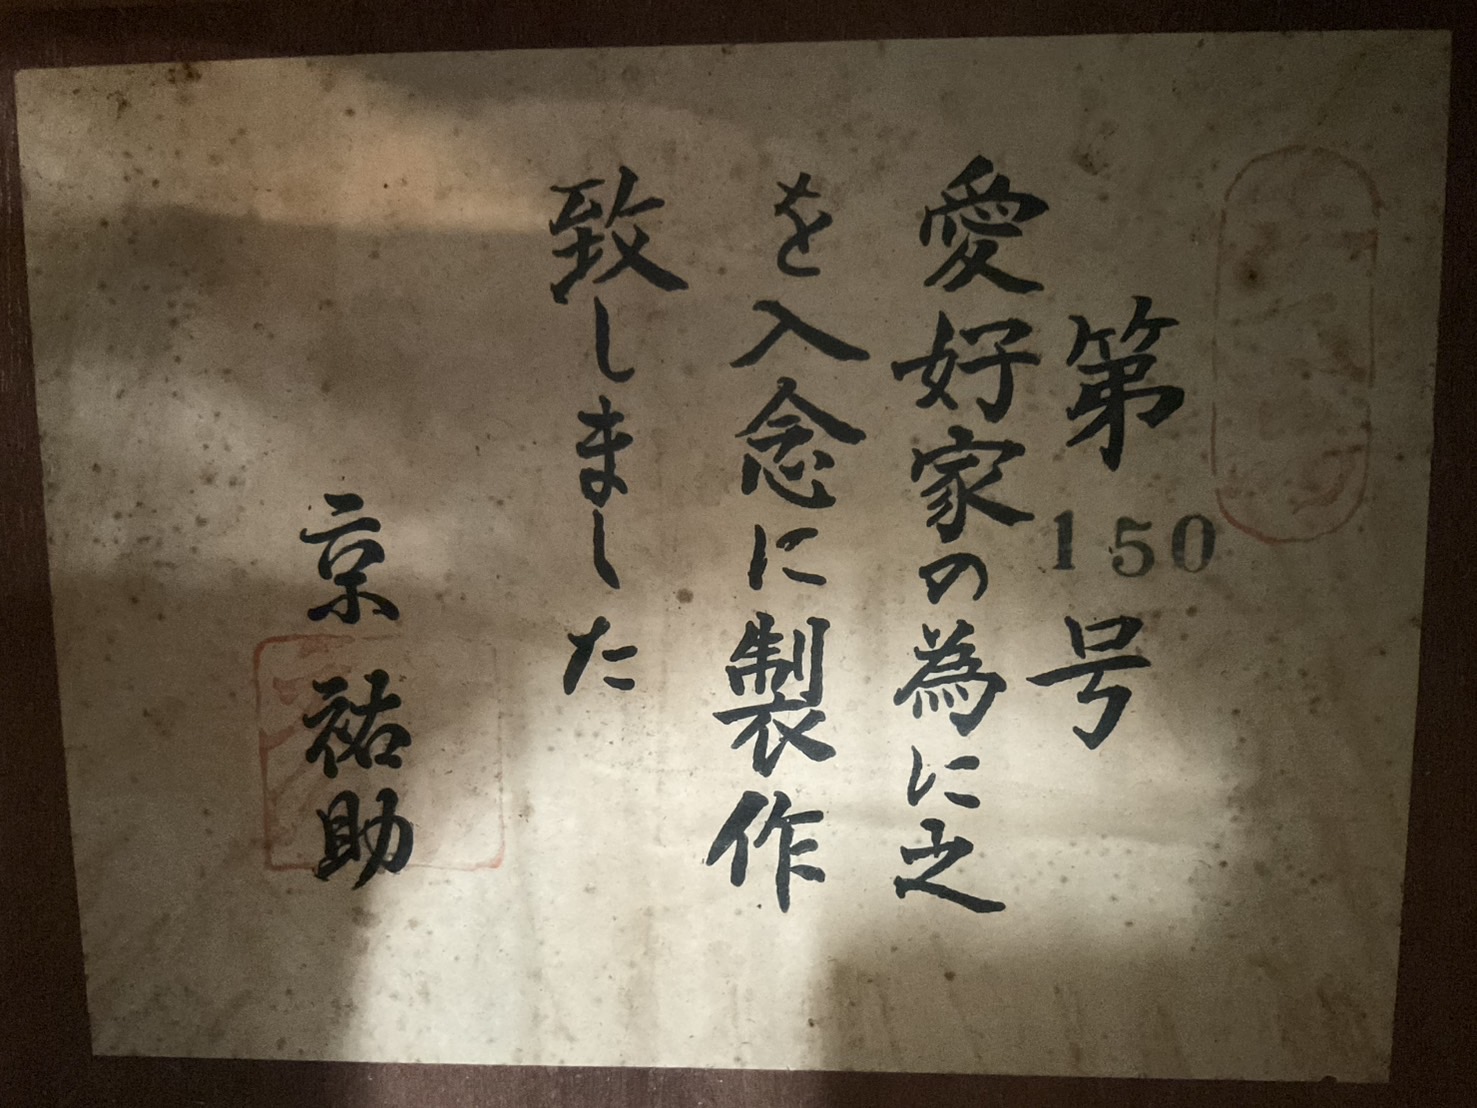 第150号
愛好家の為に之
を入念に製作
致しました
京祐助